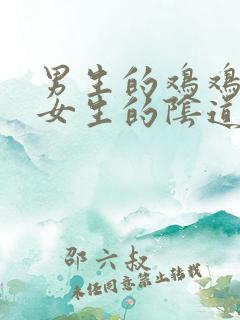 男生的鸡鸡
女生的陰道
邵六叔
未经同意禁止转载